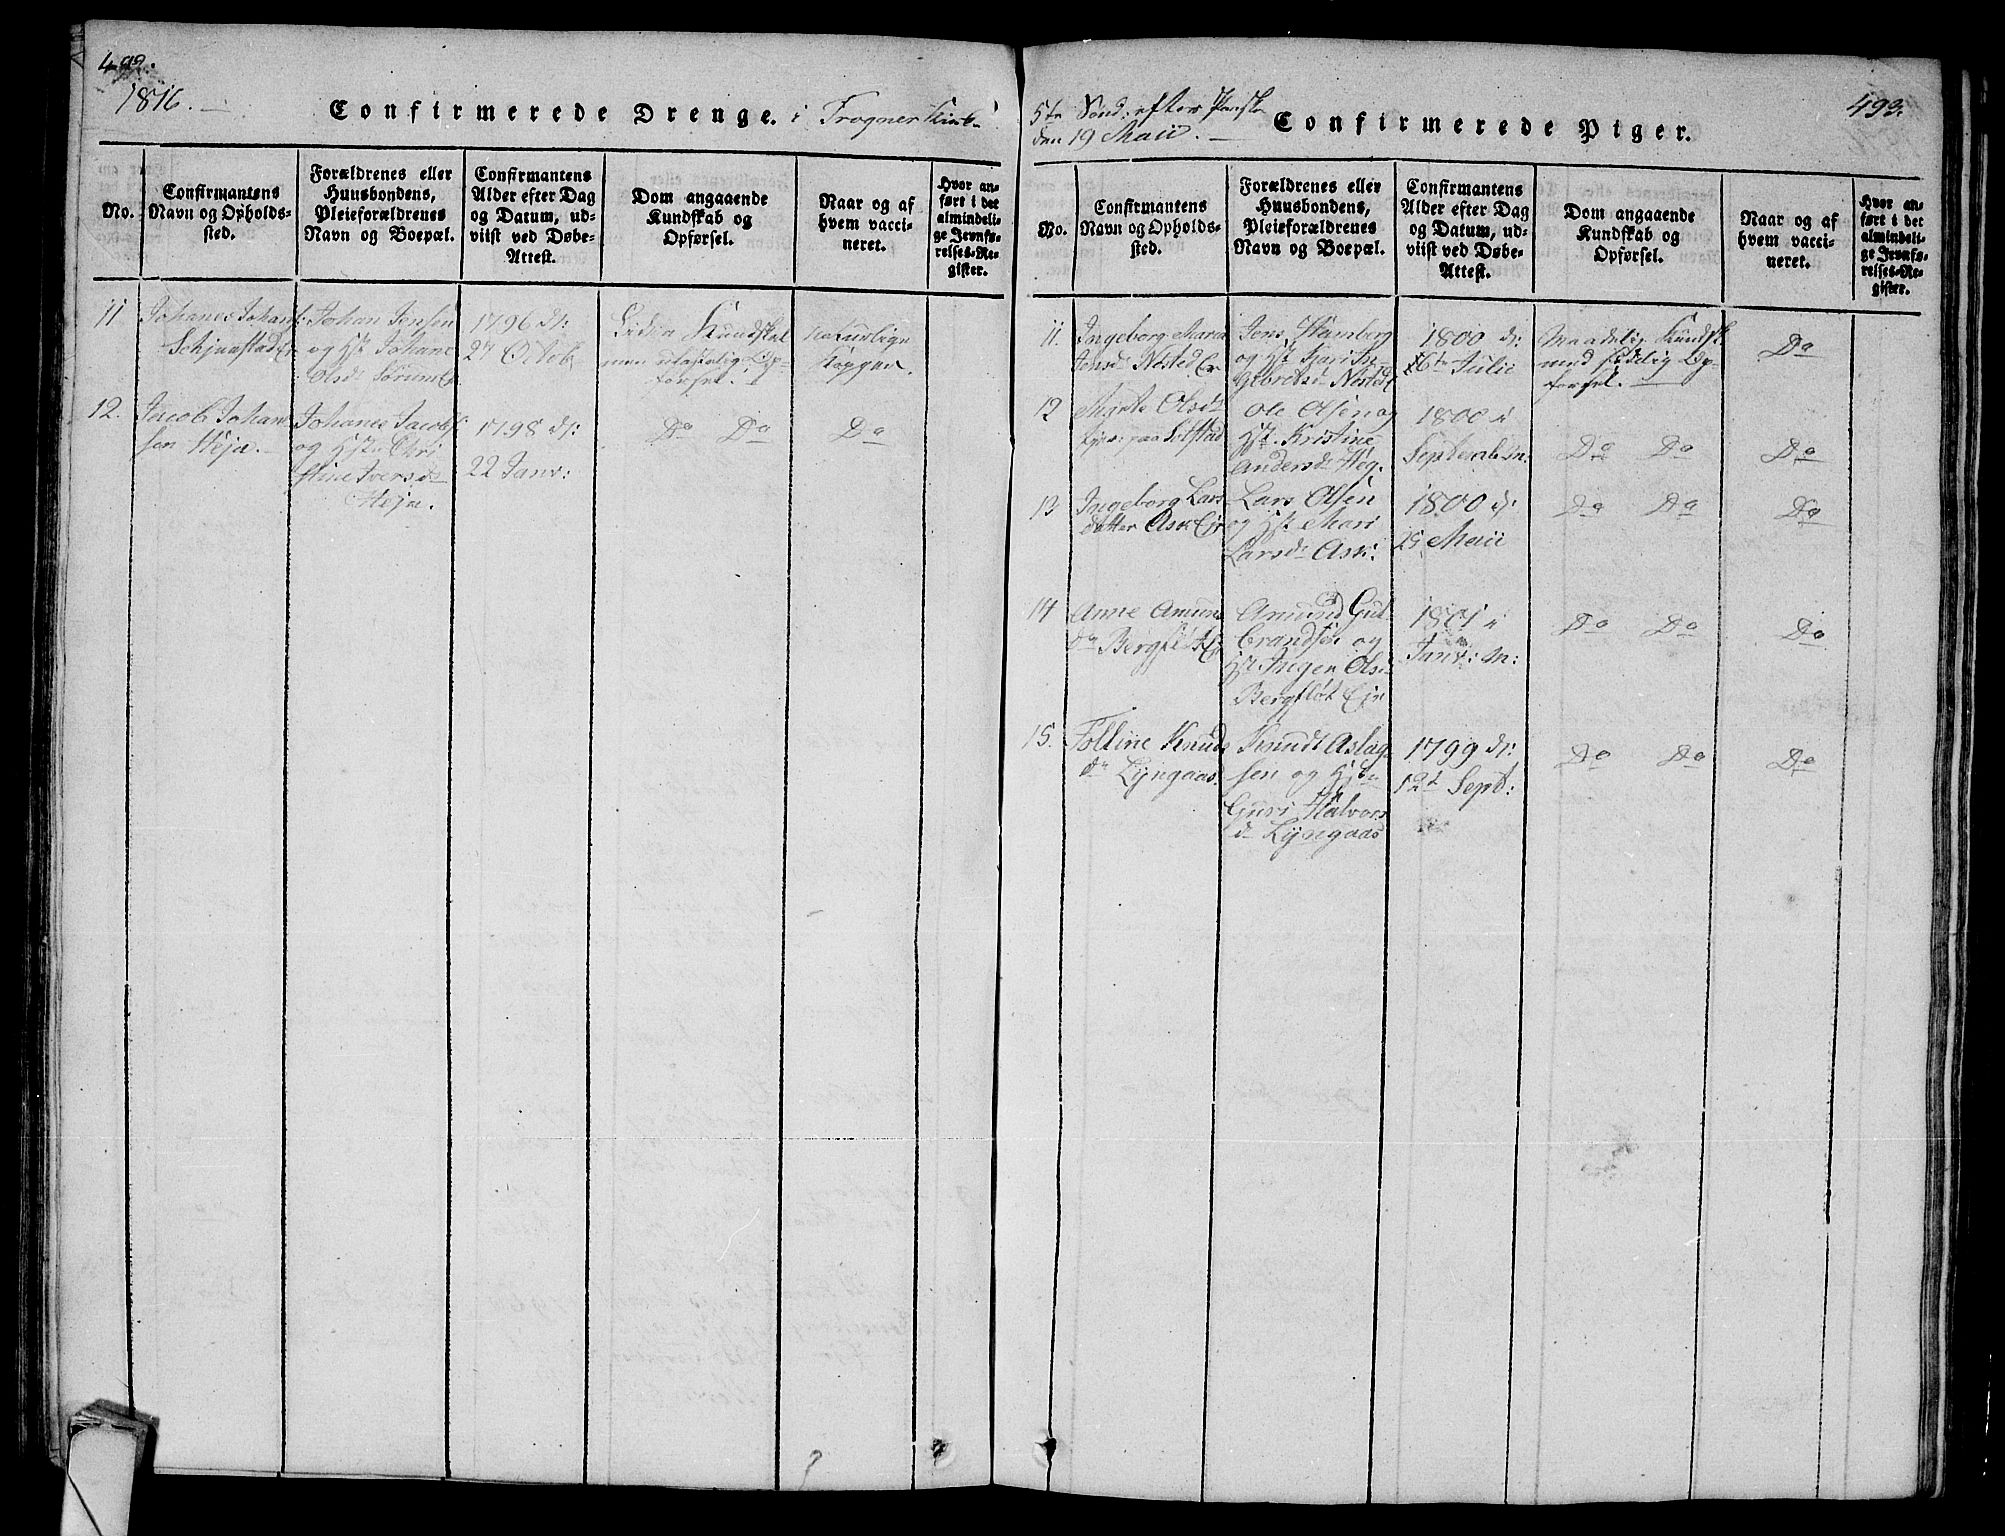 492.
1816. —
Confirmerede Drenge. i Frogner Kirke
No.
Confirmantens
Navn og Opholds-
sted.
Forældrenes eller
Huusbondens,
Pleieforældrenes
Navn og Boepæl.
Confirmantens
Alder efter Dag
og Datum, ud-
viist ved Døbe-
Attest.
Dom angaaende
Kundskab og
Opførsel.
Naar og af
hvem vacci-
neret.
Hvor an-
ført i det
almindeli-
ge Jevnfø-
relses-Re-
gister.
11
Johanes Johans:
Johan Jensen
og Hst Johane
Olsd Sørum
1796 d:
27 Octob.
Kundskab
naturlige
Kopper.
12.
Jacob Johan
sen Heja.
Johanes Jacobs
og Hst Chri
stine Iversd
Heja.
1798 d:
22 Janv:
Do Do
Do
493.
5te Sønd: efter Paaske
den 19 Maii. —
Confirmerede Piger.
No.
Confirmantens
Navn og Opholds-
sted.
Forældrenes eller
Huusbondens,
Pleieforældrenes
Navn og Boepæl.
Confirmantens
Alder efter Dag
og Datum, ud-
viist ved Døbe-
Attest.
Dom angaaende
Kundskab og
Opførsel.
Naar og af
hvem vacci-
neret.
Hvor an-
ført i det
almindeli-
ge Jevnfø-
relses-Re-
gister.
11.
Ingeborg Maria
Jensd Nested
Jens Hamborg
og Hst
Nested
1800 d:
Julii
Maadelig Kundsk
med sædelig Op
førsel.
Do
12
Marte Olsd
paa
Ole Olsen og
Hst. Kristine
Andersd Heg.
1800 i
Septemb: m:
Do Do
Do
13
Ingeborg Lars
datter Ask
Lars Olsen
og Hst Mari
Larsd Ask:
1800 d:
25 Maii
Do Do
Do
14
Anne Amund
d Bergfløt
Amund Gul
brandsen og
Hst Ingen Ols
Bergfløt
1801 i
Janv: m:
Do Do
Do
15.
Tolline Knuds
d Lyngaas.
Knudt Aslag
sen og Hst
Guri Halvors
d Lyngaas
1799 d:
12t Sept:
Do Do
Do